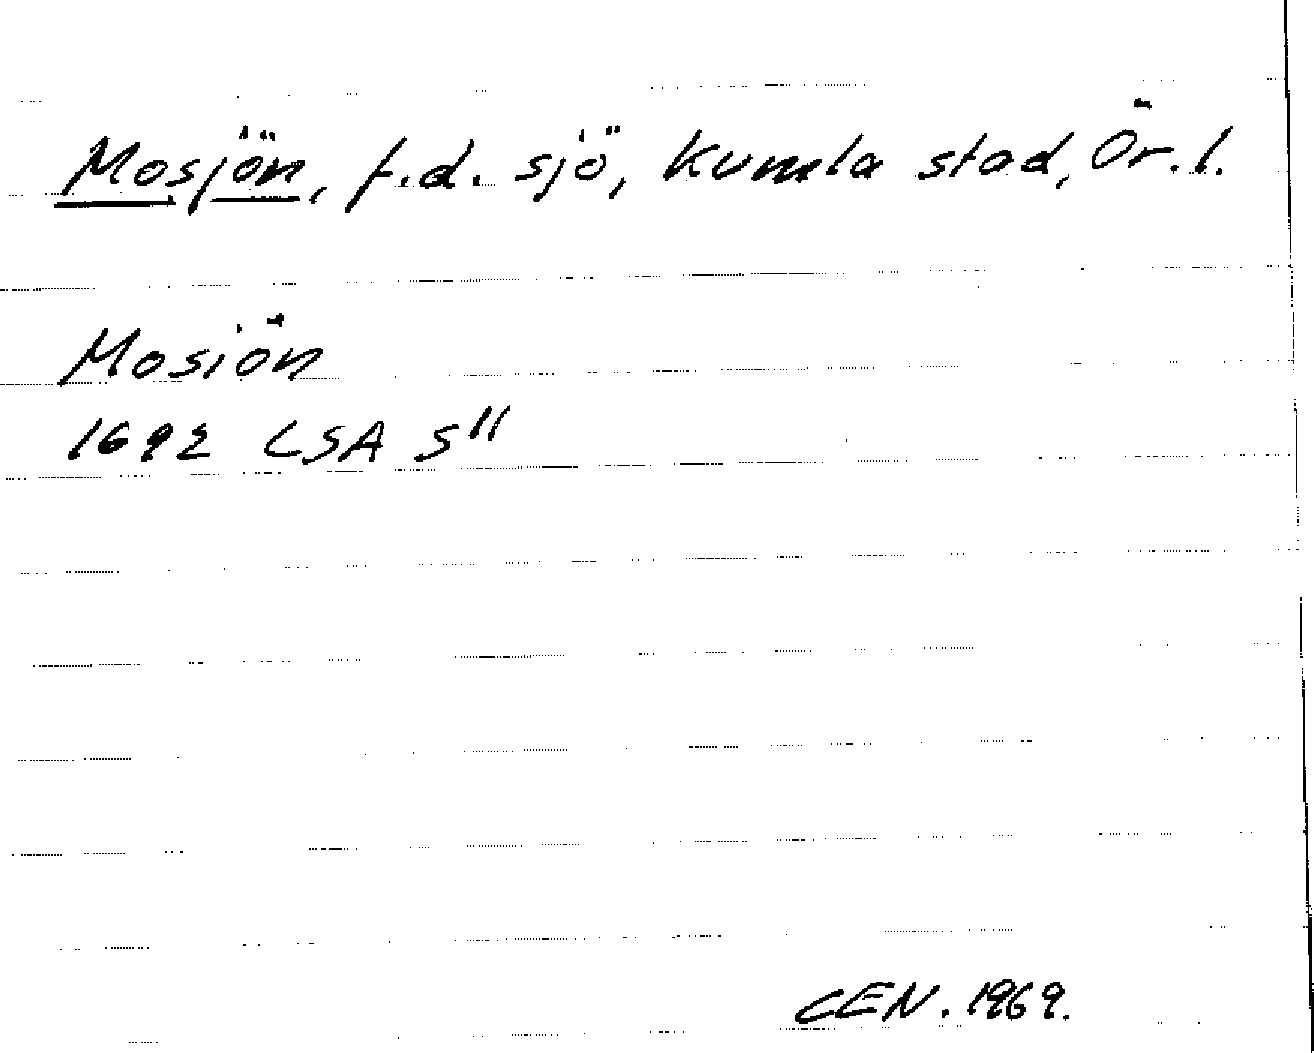 Mosjön, f.d. sjö, Kumla stad, Ör. l.
Mosiön
1692 LSA S"
CEN. 1969.